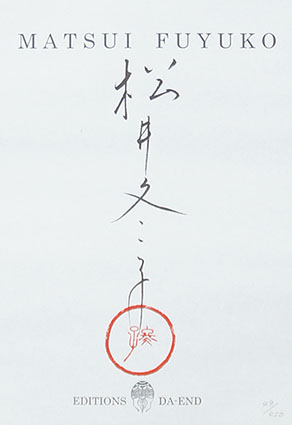 MATSUI FUYUKO
松井冬子
EDITIONS DA-END